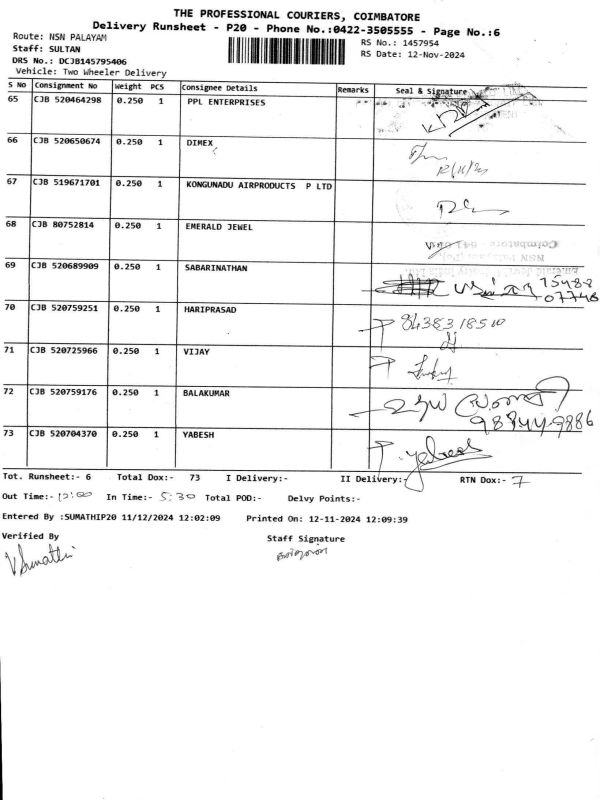 THE PROFESSIONAL COURIERS, COIMBATORE
Delivery Runsheet - P20 - Phone No.:0422-3505555 - Page No.:6
Route: NSN PALAYAM
RS No.: 1457954
Staff: SULTAN
RS Date: 12-Nov-2024
DRS No.: DCJB145795406
Vehicle: Two Wheeler Delivery
S No Consignment No Weight PCS Consignee Details Remarks Seal & Signature
65 CJB 520464298 0.250 1 PPL ENTERPRISES
66 CJB 520650674 0.250 1 DIMEX
67 CJB 519671701 0.250 1 KONGUNADU AIRPRODUCTS P LTD
68 CJB 80752814 0.250 1 EMERALD JEWEL
69 CJB 520689909 0.250 1 SABARINATHAN 75488
07748
70 CJB 520759251 0.250 1 HARIPRASAD
71 CJB 520725966 0.250 1 VIJAY
72 CJB 520759176 0.250 1 BALAKUMAR
73 CJB 520704370 0.250 1 YABESH P. Yabesh
Tot. Runsheet:- 6 Total Dox:- 73 I Delivery:- II Delivery:- RTN Dox:- 7
Out Time:- 12:00 In Time:- 5:30 Total POD:- Delvy Points:-
Entered By :SUMATHIP20 11/12/2024 12:02:09 Printed On: 12-11-2024 12:09:39
Verified By Staff Signature
V Sumathi